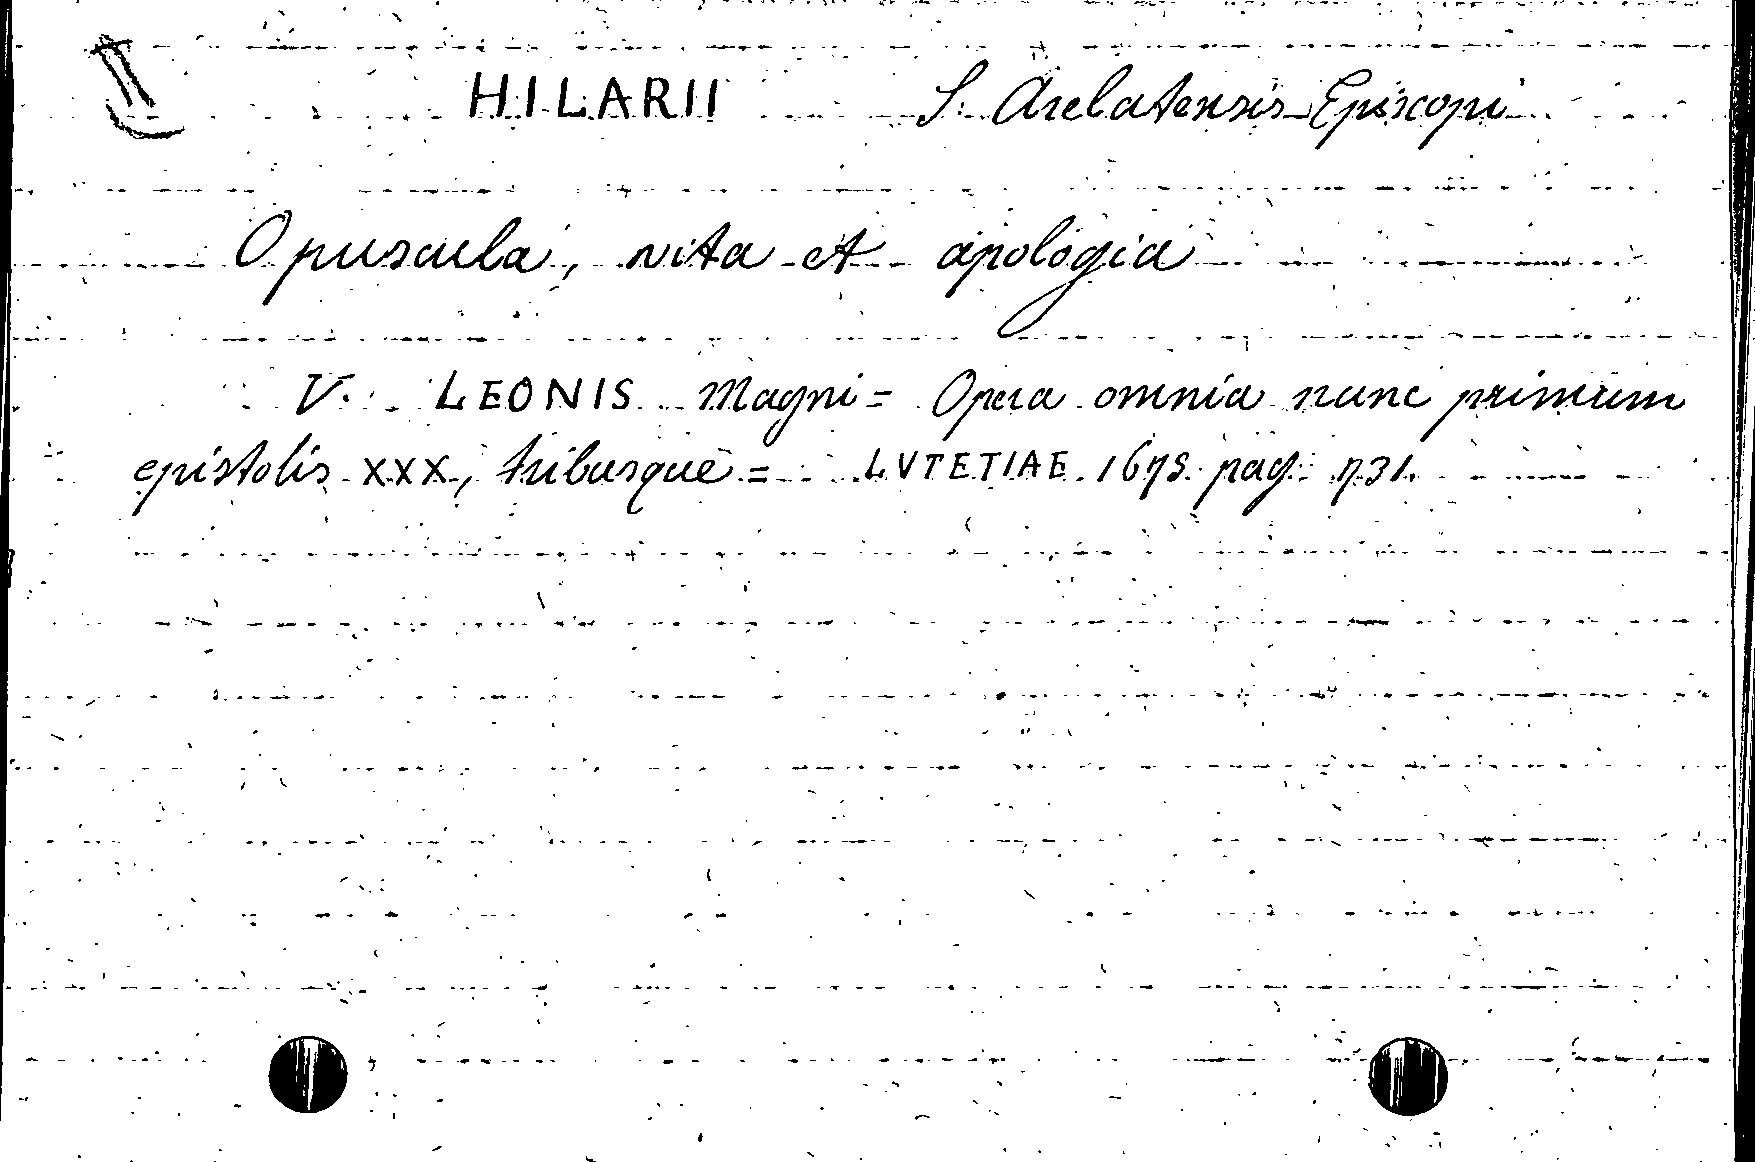 HILARII S. Arelatensis Episcopi
Opuscula, vita et apologia
V. LEONIS Magni = Opera omnia nunc primum
epistolis XXX, tribusque = LVTETIAE 1675. pag. 731.